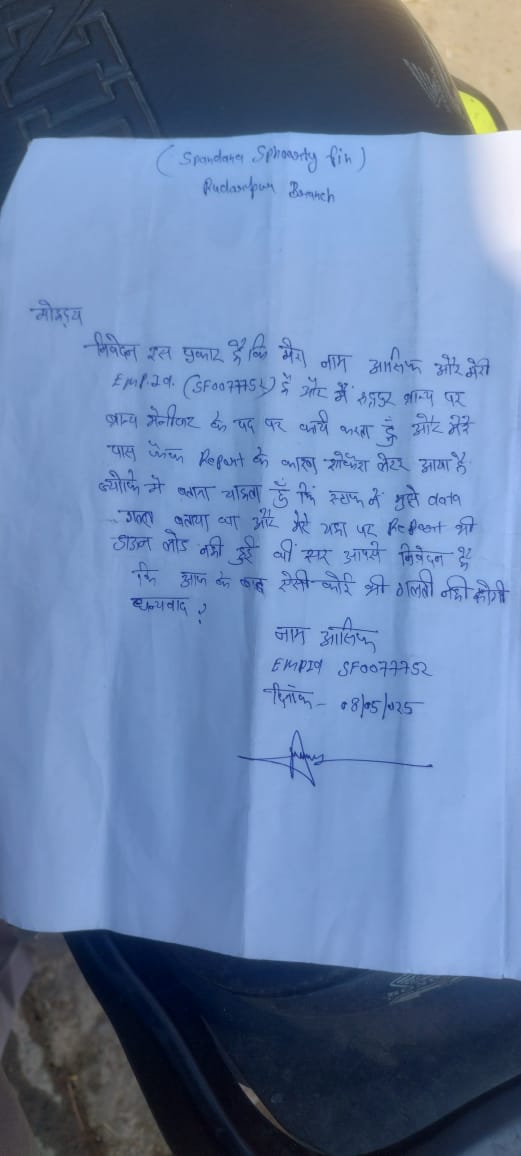 (Spandana Sphoorty fin)
Rudarpur Branch
मोहदय
निवेदन इस प्रकार है कि मेरा नाम आसिफ और मेरी
EMP.Id. (SF0077752) है और मैं रुद्रपुर ब्रान्च पर
ब्रान्च मेनेजर के पद पर कार्य करता हुँ और मेरे
पास Report के कारण शोकॉस लेटर आया है
क्योकि मे बताना चाहता हुँ कि स्टाफ ने मुझे data
गलत बताया था और मेरे यहा पर Report भी
डाउन लोड नही हुई थी सर आपसे निवेदन है
कि आज के बाद ऐसी कोई भी गलती नही होगी
धन्यवाद ?
नाम आसिफ
EMPId SF0077752
दिनांक - 08/05/025